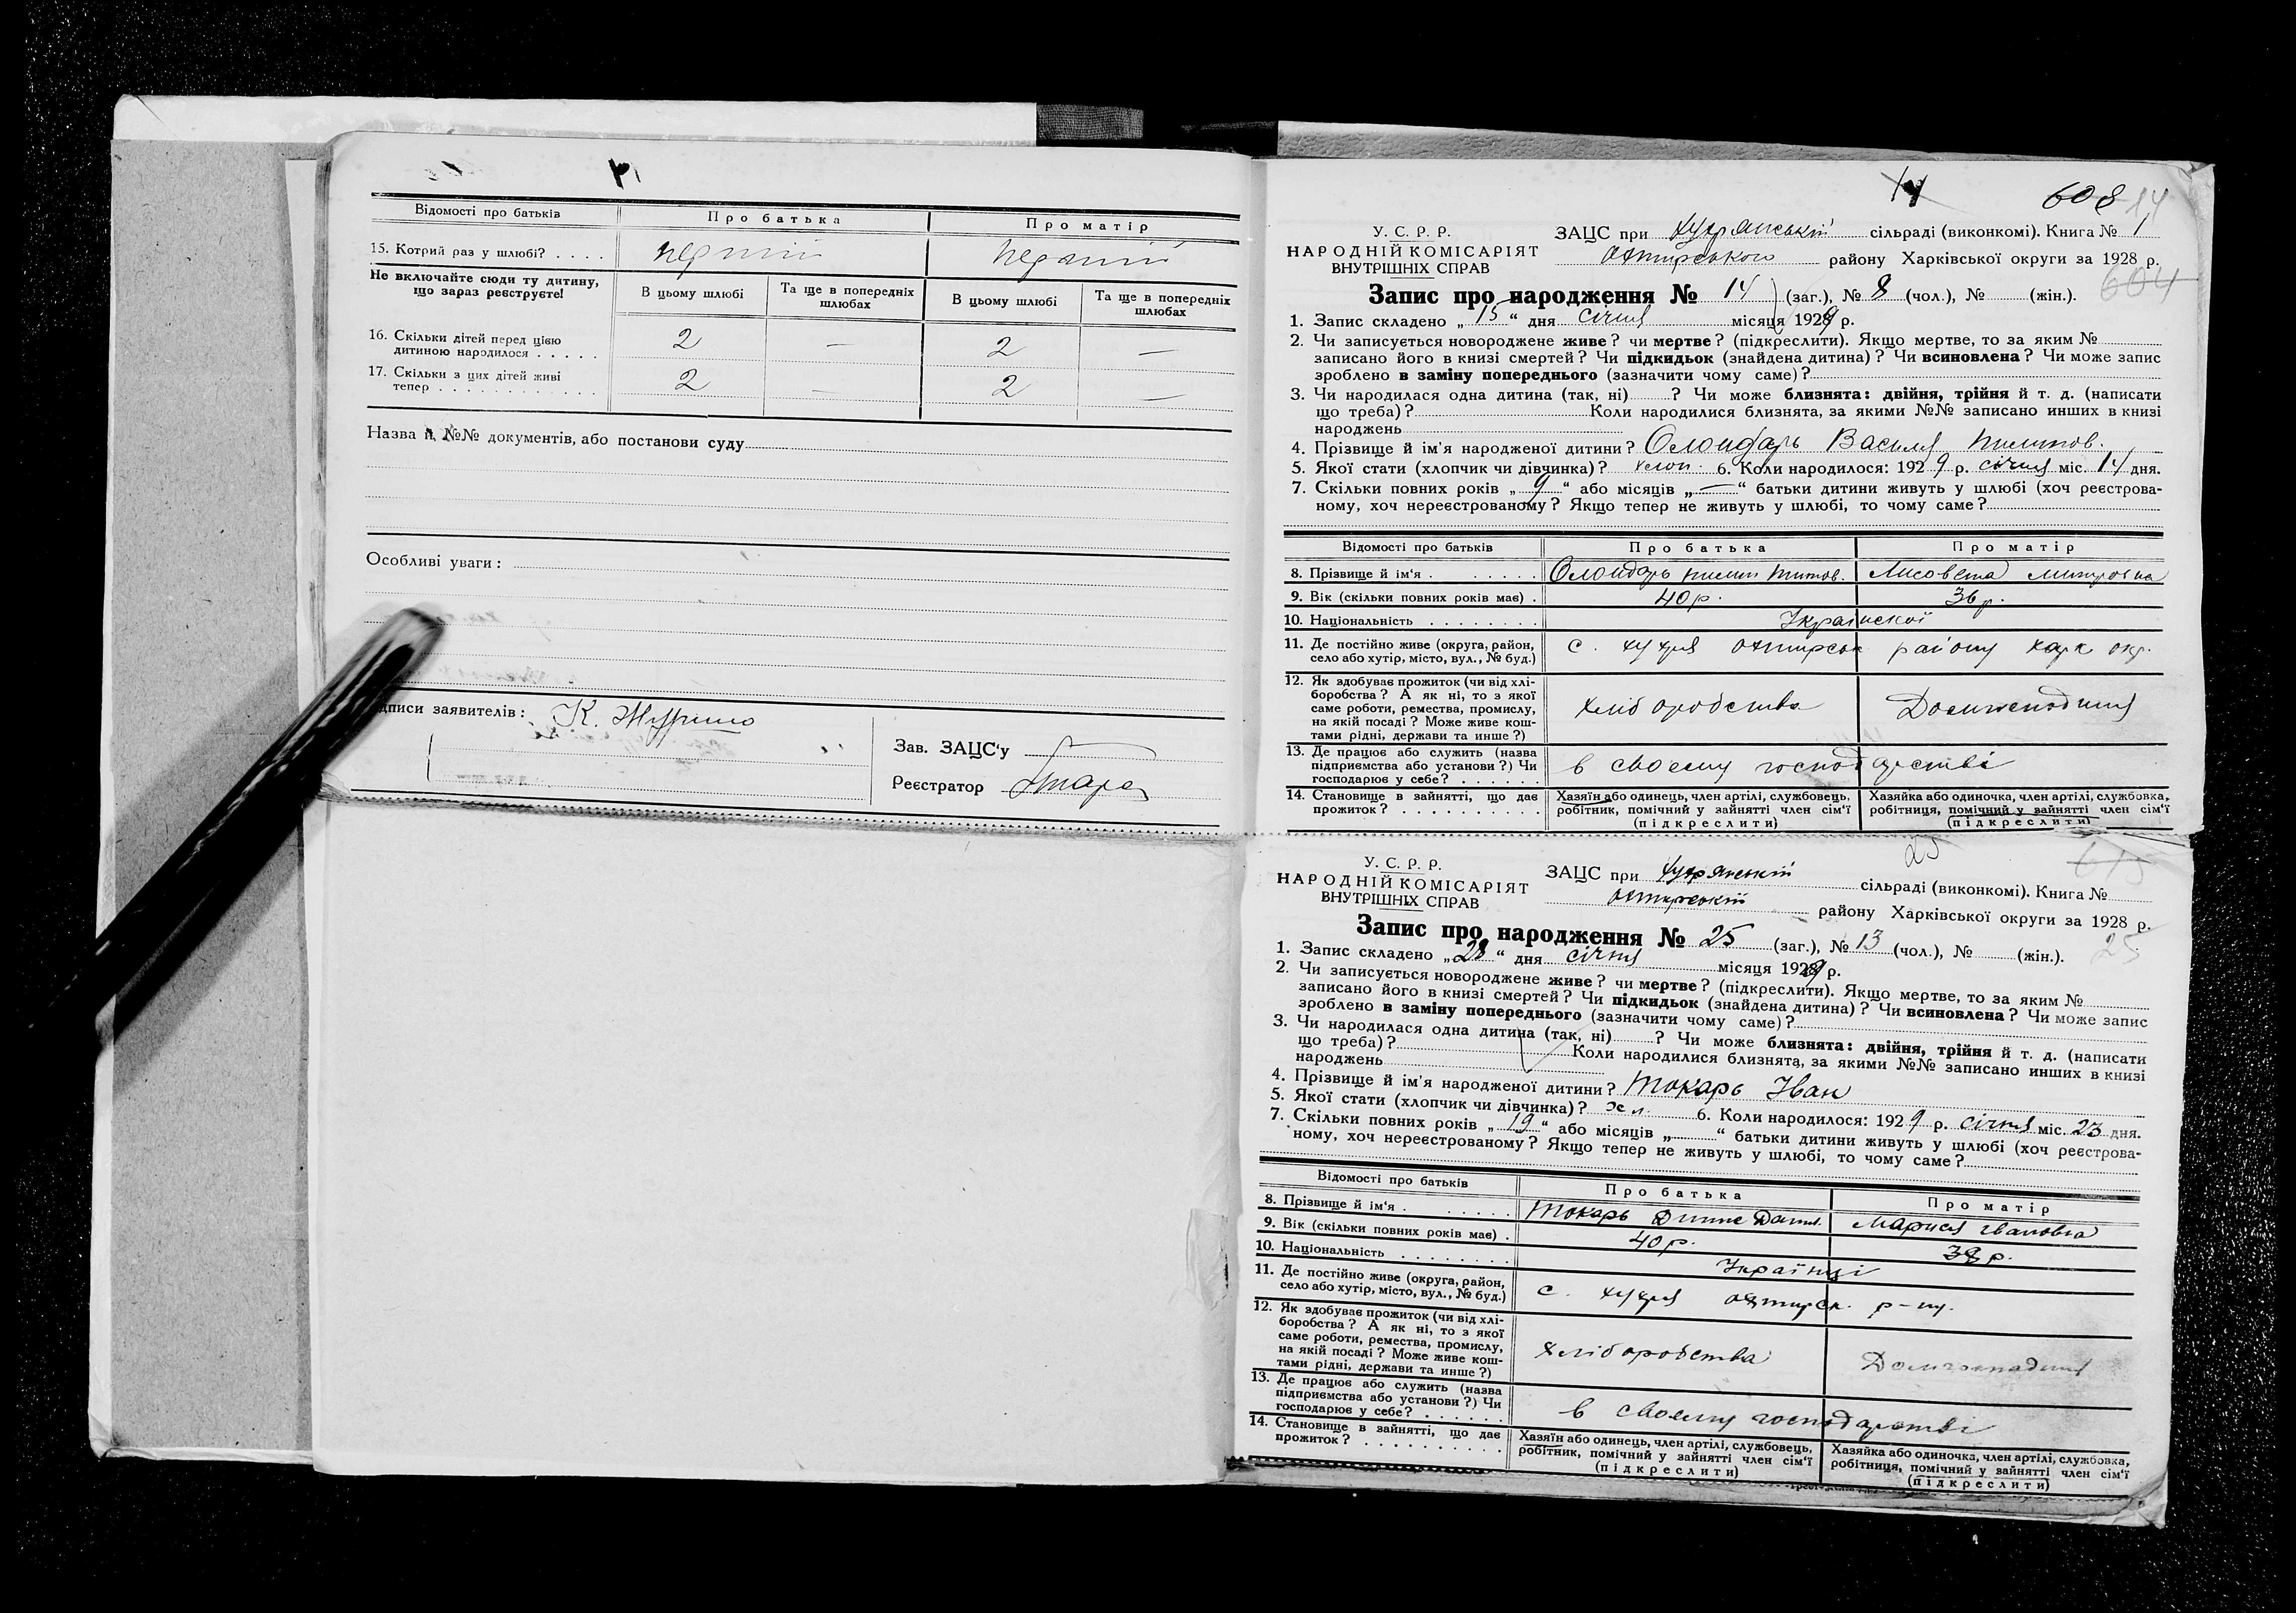 Відомості про батьків
Про батька
Про матір
15. Котрий раз у шлюбі? . . . .
перший
перший
Не включайте сюди ту дитину,
що зараз реєструєте!
В цьому шлюбі
Та ще в попередніх
шлюбах
В цьому шлюбі
Та ще в попередніх
шлюбах
16. Скільки дітей перед цією
дитиною народилося . . . . .
2 — 2 —
17. Скільки з цих дітей живі
тепер . . . . . . . . . . . .
2 — 2 —
Назва й №№ документів, або постанови суду
Особливі уваги:
дписи заявителів:
К.
Зав. ЗАЦС'у
Реєстратор
14
608 14
У. С. Р. Р.
НАРОДНІЙ КОМІСАРІЯТ
ВНУТРІШНІХ СПРАВ
ЗАЦС при Хухрянській сільраді (виконкомі). Книга № 1
Охтирського району Харківської округи за 1928 р.
604
Запис про народження № 14 (заг.), № 8 (чол.), № (жін.).
1. Запис складено „ 15 “ дня січня місяця 1929 р.
2. Чи записується новороджене живе? чи мертве? (підкреслити). Якщо мертве, то за яким №
записано його в книзі смертей? Чи підкидьок (знайдена дитина)? Чи всиновлена? Чи може запис
зроблено в заміну попереднього (зазначити чому саме)?
3. Чи народилася одна дитина (так, ні) ? Чи може близнята: двійня, трійня й т. д. (написати
що треба)? Коли народилися близнята, за якими №№ записано инших в книзі
народжень
4. Прізвище й ім'я народженої дитини? Василя
5. Якої стати (хлопчик чи дівчинка)? хлоп. 6. Коли народилося: 1929 р. січня міс. 14 дня.
7. Скільки повних років „ 9 “ або місяців „ — “ батьки дитини живуть у шлюбі (хоч реєстрова-
ному, хоч нереєстрованому? Якщо тепер не живуть у шлюбі, то чому саме?
Відомості про батьків
Про батька
Про матір
8. Прізвище й ім'я . . . . . . .
Лисовета
9. Вік (скільки повних років має) .
40 р.
36 р.
10. Національність . . . . . . . .
Українскої
11. Де постійно живе (округа, район,
село або хутір, місто, вул., № буд.)
с. Хухря Охтирськ району Харк окр.
12. Як здобуває прожиток (чи від хлі-
боробства? А як ні, то з якої
саме роботи, ремества, промислу,
на якій посаді? Може живе кош-
тами рідні, держави та инше?)
Хліборобства
Домгосподиня
13. Де працює або служить (назва
підприємства або установи?) Чи
господарює у себе? . . . . . .
в своєму господарстві
14. Становище в зайнятті, що дає
прожиток? . . . . . . . . . .
Хазяїн або одинець, член артілі, службовець,
робітник, помічний у зайнятті член сім'ї
(підкреслити)
Хазяйка або одиночка, член артілі, службовка,
робітниця, помічний у зайнятті член сім'ї
(підкреслити)
25
615
У. С. Р. Р.
НАРОДНІЙ КОМІСАРІЯТ
ВНУТРІШНІХ СПРАВ
ЗАЦС при Хухрянській сільраді (виконкомі). Книга №
Охтирській району Харківської округи за 1928 р.
25
Запис про народження № 25 (заг.), № 13 (чол.), № (жін.).
1. Запис складено „ 28 “ дня січня місяця 1929 р.
2. Чи записується новороджене живе? чи мертве? (підкреслити). Якщо мертве, то за яким №
записано його в книзі смертей? Чи підкидьок (знайдена дитина)? Чи всиновлена? Чи може запис
зроблено в заміну попереднього (зазначити чому саме)?
3. Чи народилася одна дитина (так, ні) ? Чи може близнята: двійня, трійня й т. д. (написати
що треба)? Коли народилися близнята, за якими №№ записано инших в книзі
народжень
4. Прізвище й ім'я народженої дитини? Токарь Іван
5. Якої стати (хлопчик чи дівчинка)? хл. 6. Коли народилося: 1929 р. січня міс. 23 дня.
7. Скільки повних років „ 19 “ або місяців „ “ батьки дитини живуть у шлюбі (хоч реєстрова-
ному, хоч нереєстрованому? Якщо тепер не живуть у шлюбі, то чому саме?
Відомості про батьків
Про батька
Про матір
8. Прізвище й ім'я . . . . . . .
Токарь
Марися Івановна
9. Вік (скільки повних років має) .
40 р.
38 р.
10. Національність . . . . . . .
Українці
11. Де постійно живе (округа, район,
село або хутір, місто, вул., № буд.)
с. Хухря Охтирськ. р-ну.
12. Як здобуває прожиток (чи від хлі-
боробства? А як ні, то з якої
саме роботи, ремества, промислу,
на якій посаді? Може живе кош-
тами рідні, держави та инше?)
Хліборобства
Домгосподиня
13. Де працює або служить (назва
підприємства або установи?) Чи
господарює у себе? . . . . . .
в своєму господарстві
14. Становище в зайнятті, що дає
прожиток? . . . . . . . . . .
Хазяїн або одинець, член артілі, службовець,
робітник, помічний у зайнятті член сім'ї
(підкреслити)
Хазяйка або одиночка, член артілі, службовка,
робітниця, помічний у зайнятті член сім'ї
(підкреслити)